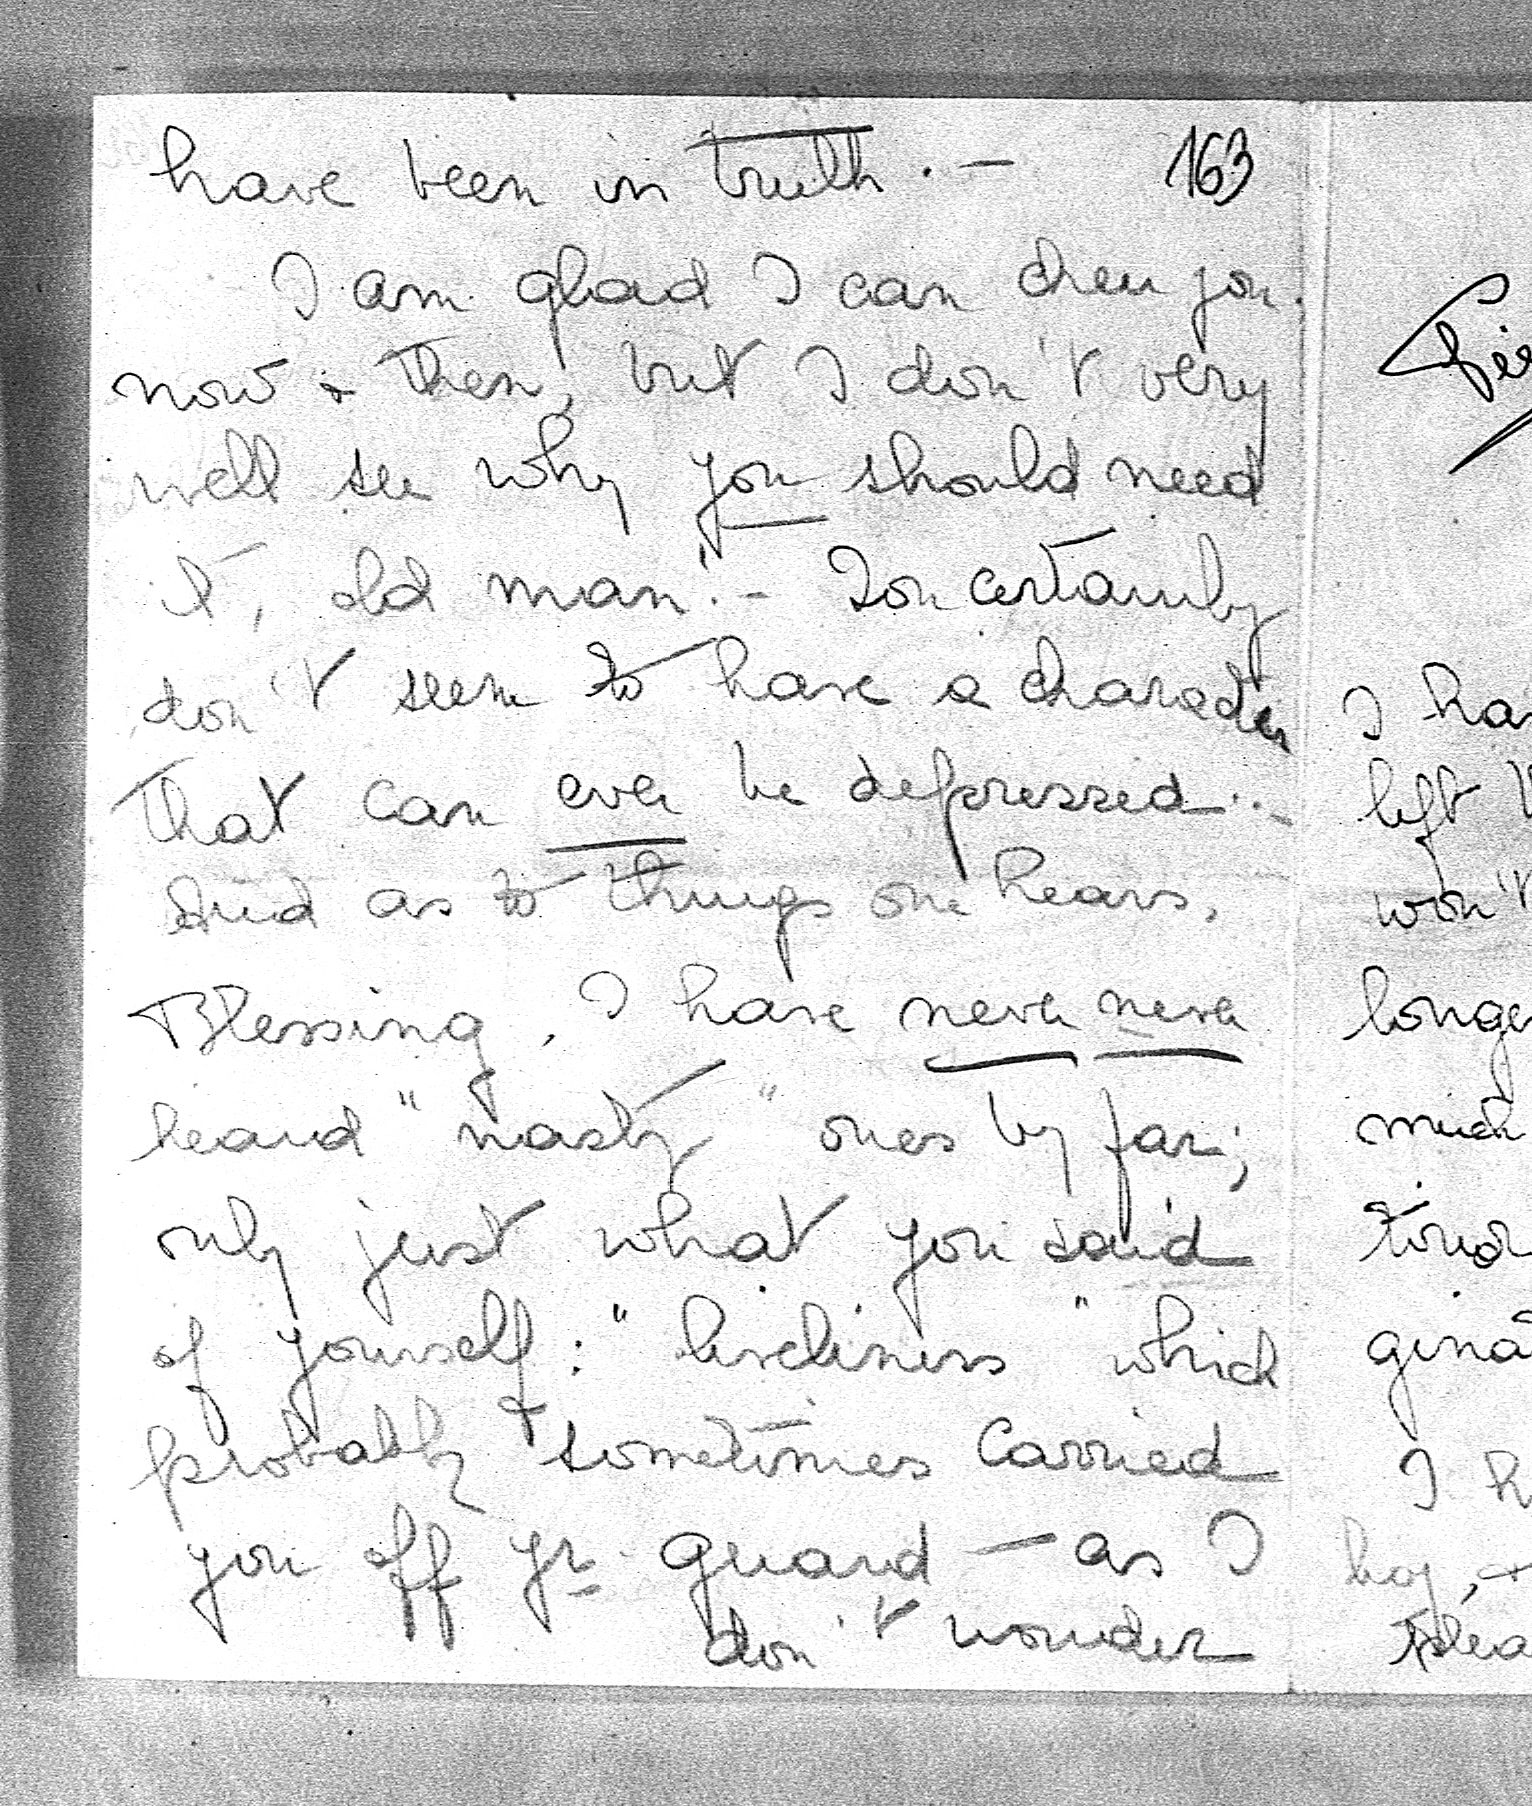 have been in truth. — 163
I am glad I can cheer you
now & then, but I don't very
well see why you should need
it, old man! — You certainly
don't seem to have a character
that can ever be depressed. —
And as to things one hears,
Blessing, I have never never
heard "nasty" ones by far;
only just what you said
of yourself: "liveliness" which
probably sometimes carried
you off yr guard — as I
don't wonder
I
left
won't
much
I
boy, &